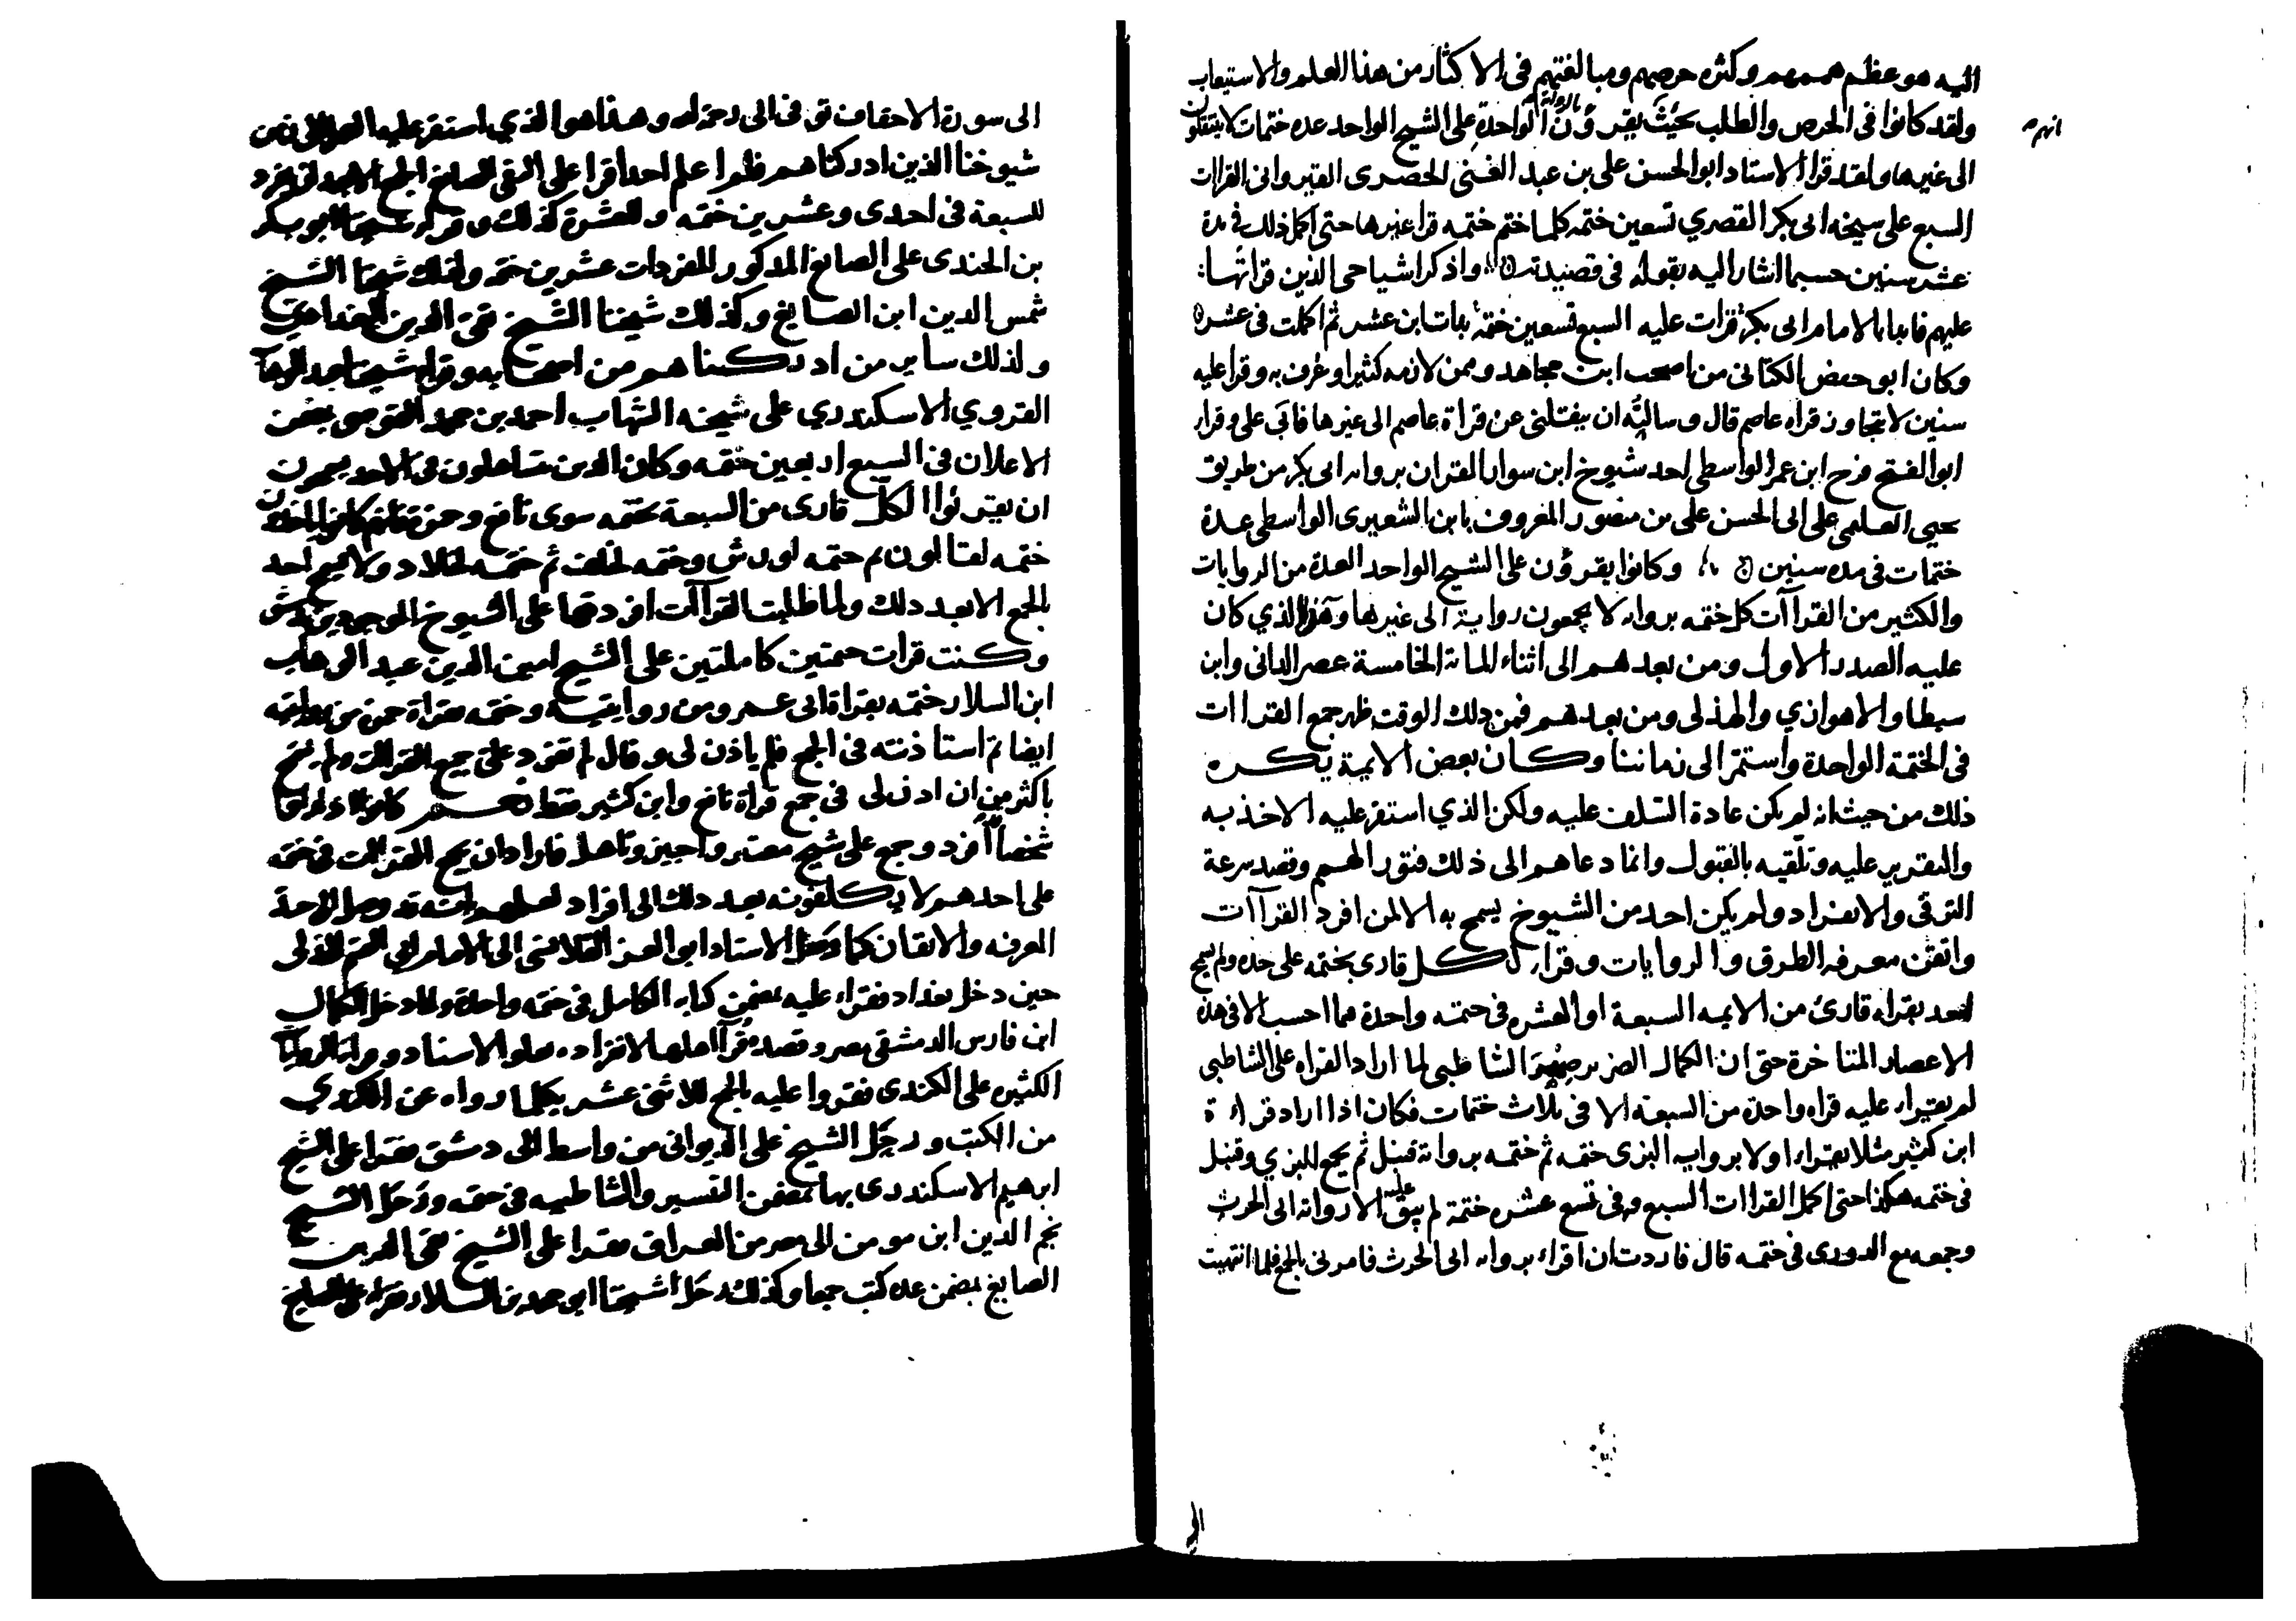 اليه هو عظم هممهم وكثره حرصهم ومبالغتهم فى الاكثار من هذا العلم والاستيعاب
ولقد كانوا فى الحرص والطلب بحيث يقرؤن بالرواية الواحدة على الشيخ الواحد عده ختمات لا ينتقلون
انهم
الى غيرها ولقد قرا الاستاد ابو الحسن على بن عبد الغنى الحصرى القيروانى القراات
السبع على سيخه ابى بكر القصري تسعين ختمه كلما ختم ختمه قرا غيرها حتى اكمل ذلك فى مدة
عشر سنين حسبما اشار اليه بقوله فى قصيدته واذكر اشياخى الذين قراتها
عليهم فابدا بالامام ابى بكر قرات عليه السبع تسعين ختمة بدات ابن عشر ثم اكملت فى عشر
وكان ابو حفص الكتانى من اصحب ابن مجاهد وممن لازمه كثيرا وعرف به وقرا عليه
سنين لا يتجاوز قراه عاصم قال وسالته ان ينقلنى عن قراة عاصم الى غيرها فابى على وقرا
ابو الفتح فرح ابن عمر الواسطى احد شيوخ ابن سوار القران بروايه ابى بكر من طريق
يحيى العليمى على ابى الحسن على بن منصور المعروف بابن الشعيرى الواسطى عدة
ختمات فى مده سنين وكانوا يقرؤن على الشيخ الواحد العدة من الروايات
والكثير من القراآت كل ختمه بروايه لا يجمعون رواية الى غيرها وهذا الذي كان
عليه الصدر الاول ومن بعدهم الى اثناء الماىة الخامسة عصر الدانى وابن
سيطا والاهوازي والهذلى ومن بعدهم فمن ذلك الوقت ظهر جمع القراات
فى الختمة الواحدة واستمر الى زماننا وكان بعض الايمة يكره
ذلك من حيث انه لم يكن عادة السلف عليه ولكن الذي استقر عليه الاخذ به
والتقرير عليه وتلقيه بالقبول وانما دعاهم الى ذلك فتور الهمم وقصد سرعة
الترقى والانفراد ولم يكن احد من الشيوخ يسمح به الا لمن افرد القراآت
واتقن معرفه الطرق والروايات وقرا لكل قارى بختمه على حده ولم يسمح
احد بقراه قارئ من الايمه السبعة او العشره فى ختمه واحدة فيما احسب الا فى هذه
الاعصار المتاخرة حتى ان الكمال الضرير صهر الشاطبى لما اراد القراه على الشاطبى
لم يقراء عليه قراه واحدة من السبعة الا فى ثلاث ختمات فكان اذا اراد قراءة
ابن كثير مثلا يقراء اولا بروايه البزى ختمه ثم ختمه بروايه قنبل ثم يجمع البزي وقنبل
فى ختمه هكذا حتى اكمل القراات السبع وفى تسع عشره ختمة لم يبق عليه الا رواية ابى الحرث
وجمعه مع الدورى فى ختمه قال فاردت ان اقراء بروايه ابى الحرث فامرنى بالجمع فلما انتهيت
الى
الى سورة الاحقاف توفى الى رحمة الله وهذا هو الذي استقر عليه العمل الى زمن
شيوخنا الذين ادركناهم فلم اعلم احدا قرا على التقى الصايغ الجمع الا بعد ان يفرد
للسبعة فى احدى وعشرين ختمه وللعشرة كذلك وقرا شيخنا ابو بكر
بن الجندى على الصايغ المذكور المفردات عشرين ختمه وكذلك شيخنا الشيخ
شمس الدين ابن الصايغ وكذلك شيخنا الشيخ تقى الدين البغدادي
ولذلك ساير من ادركناهم من اصحابه وقرا شيخنا عبد الوهاب
القروي الاسكندري على شيخه الشهاب احمد بن محمد القوصى بمضمن
الاعلان فى السبع اربعين ختمه وكان الذين يتساهلون فى الاخذ يسمحون
ان يقرئوا لكل قارى من السبعة بختمه سوى نافع وحمزة فانهم كانوا ياخذون
ختمه لقالون ثم ختمه لورش وختمه لخلف ثم ختمه لخلاد ولا يسمح احد
بالجمع الا بعد ذلك ولما طلبت القراآت افردتها على الشيوخ الموجودين بدمشق
وكنت قرات ختمتين كاملتين على الشيخ امين الدين عبد الوهاب
ابن السلار ختمه بقراة ابى عمرو من روايتيه وختمه بقراة حمزه من روايتيه
ايضا ثم استاذنته فى الجمع فلم ياذن لى وقال لم تفرد على جميع القراات ولم يسمح
باكثر من ان اذن لى فى جمع قراة نافع وابن كثير فقط نعم كانوا اذا راوا
شخصا افرد وجمع على شيخ معتبر واجيز وتاهل فاراد ان يجمع القراات فى ختمه
على احدهم لا يكلفونه بعد ذلك الى افراد لعلمهم بانه قد وصل الى حد
المعرفه والاتقان كما وصل الاستاد ابو العز القلانسى الى الامام ابى القسم الهذلى
حين دخل بغداد فقراء عليه بمضمن كتابه الكامل فى ختمه واحدة ولما دخل الكمال
ابن فارس الدمشقى مصر وقصده قرآ اهلها لانفراده بعلو الاسناد وقراة الروايات
الكثيره على الكندى فقروا عليه بالجمع للاثنى عشر بكلما رواه عن الكندي
من الكتب ورحل الشيخ على الديوانى من واسط الى دمشق فقرا على الشيخ
ابرهيم الاسكندرى بها بمضمن التيسير والشاطبيه فى ختمه ورحل الشيخ
نجم الدين ابن مومن الى مصر من العراق فقرا على الشيخ تقى الدين
الصايغ بمضمن عده كتب جمعا وكذلك رحل شيخنا ابو محمد بن السلار فقراء على الصايغ